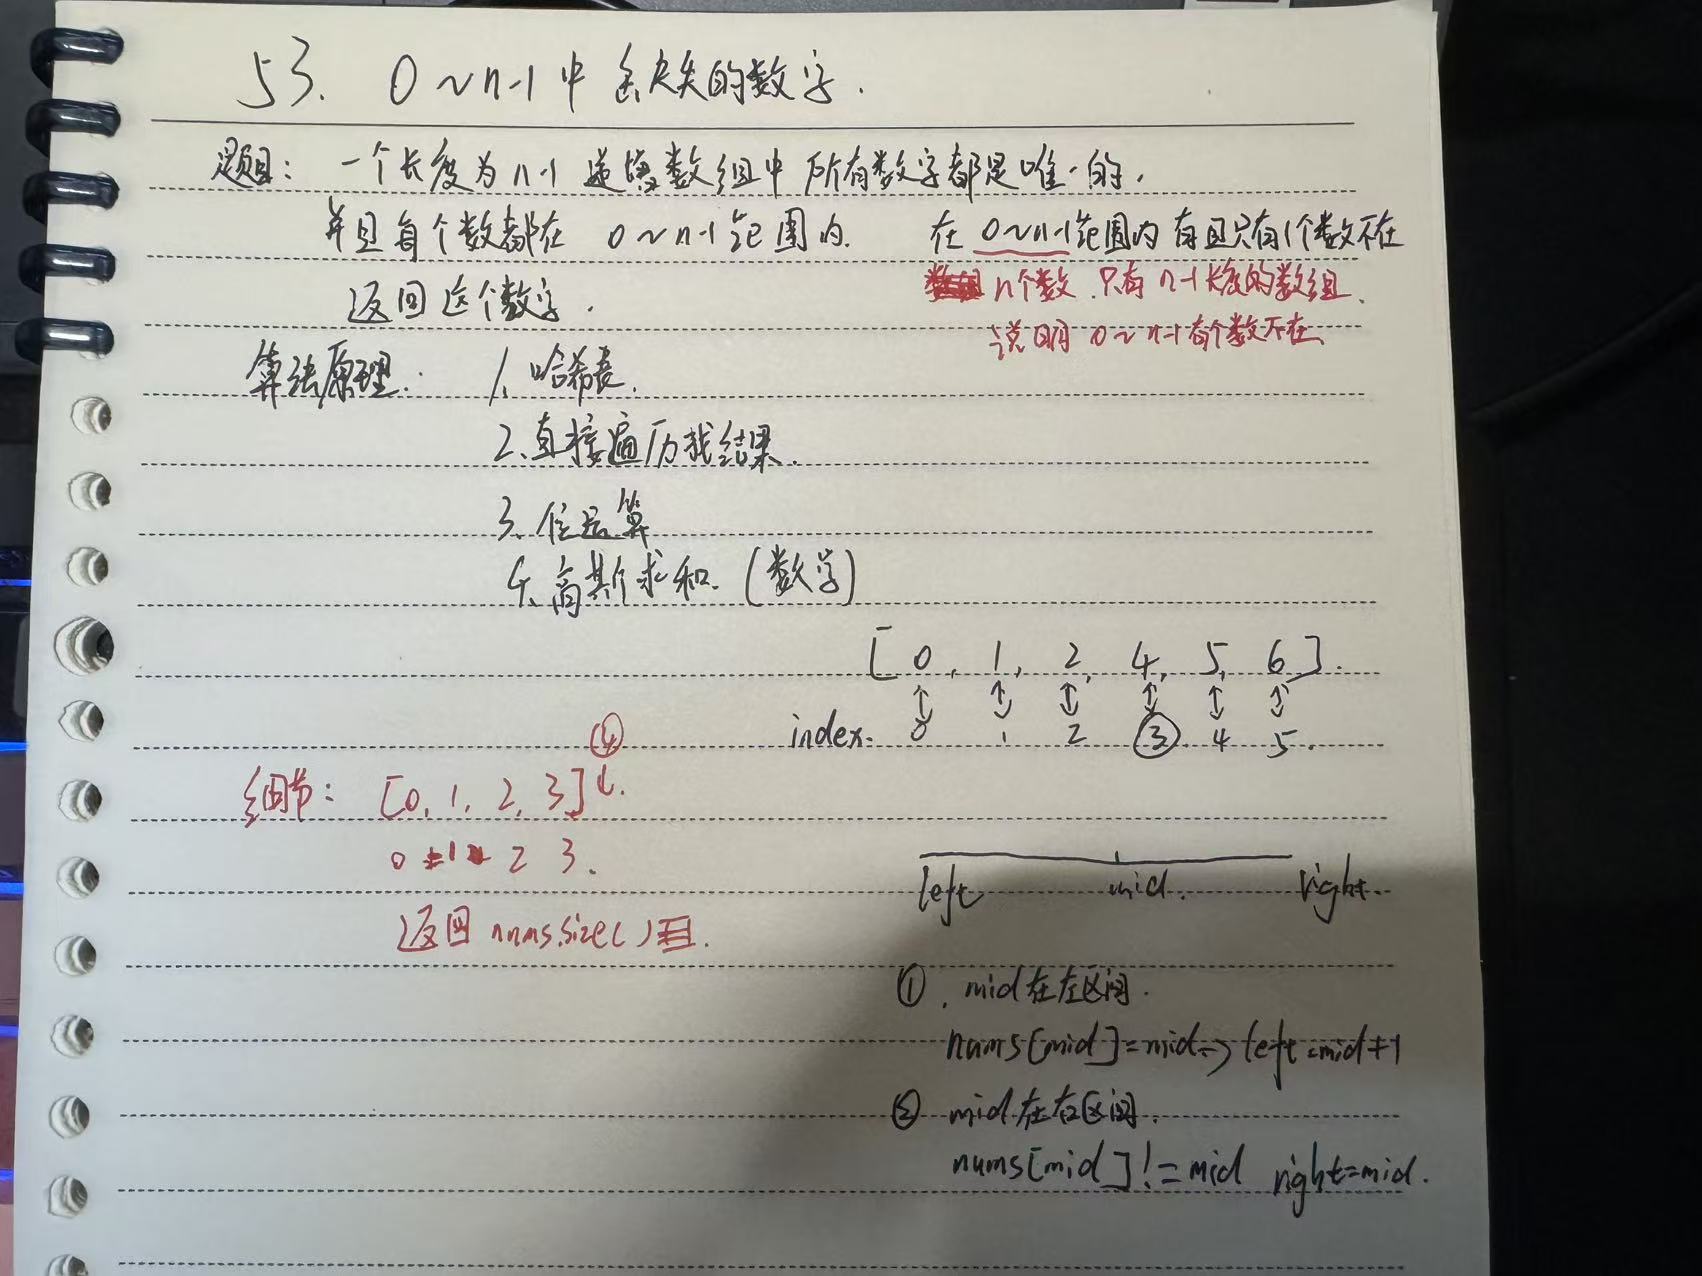 53. 0~n-1中缺失的数字.
题目: 一个长度为n-1递增数组中所有数字都是唯一的.
并且每个数都在 0~n-1范围内. 在0~n-1范围内有且只有1个数不在
n个数.只有n-1长度的数组.
返回这个数字.
说明0~n-1有个数不在
算法原理: 1、哈希表.
2、直接遍历找结果.
3、位运算
4、高斯求和.(数学)
[0, 1, 2, 4, 5, 6].
index. 0 1 2 ③ 4 5.
④
细节: [0, 1, 2, 3]
0 1 2 3.
left mid. right.
返回nums.size()
①. mid在左区间.
nums[mid]=mid→left=mid+1
② mid在右区间.
nums[mid]!=mid right=mid.